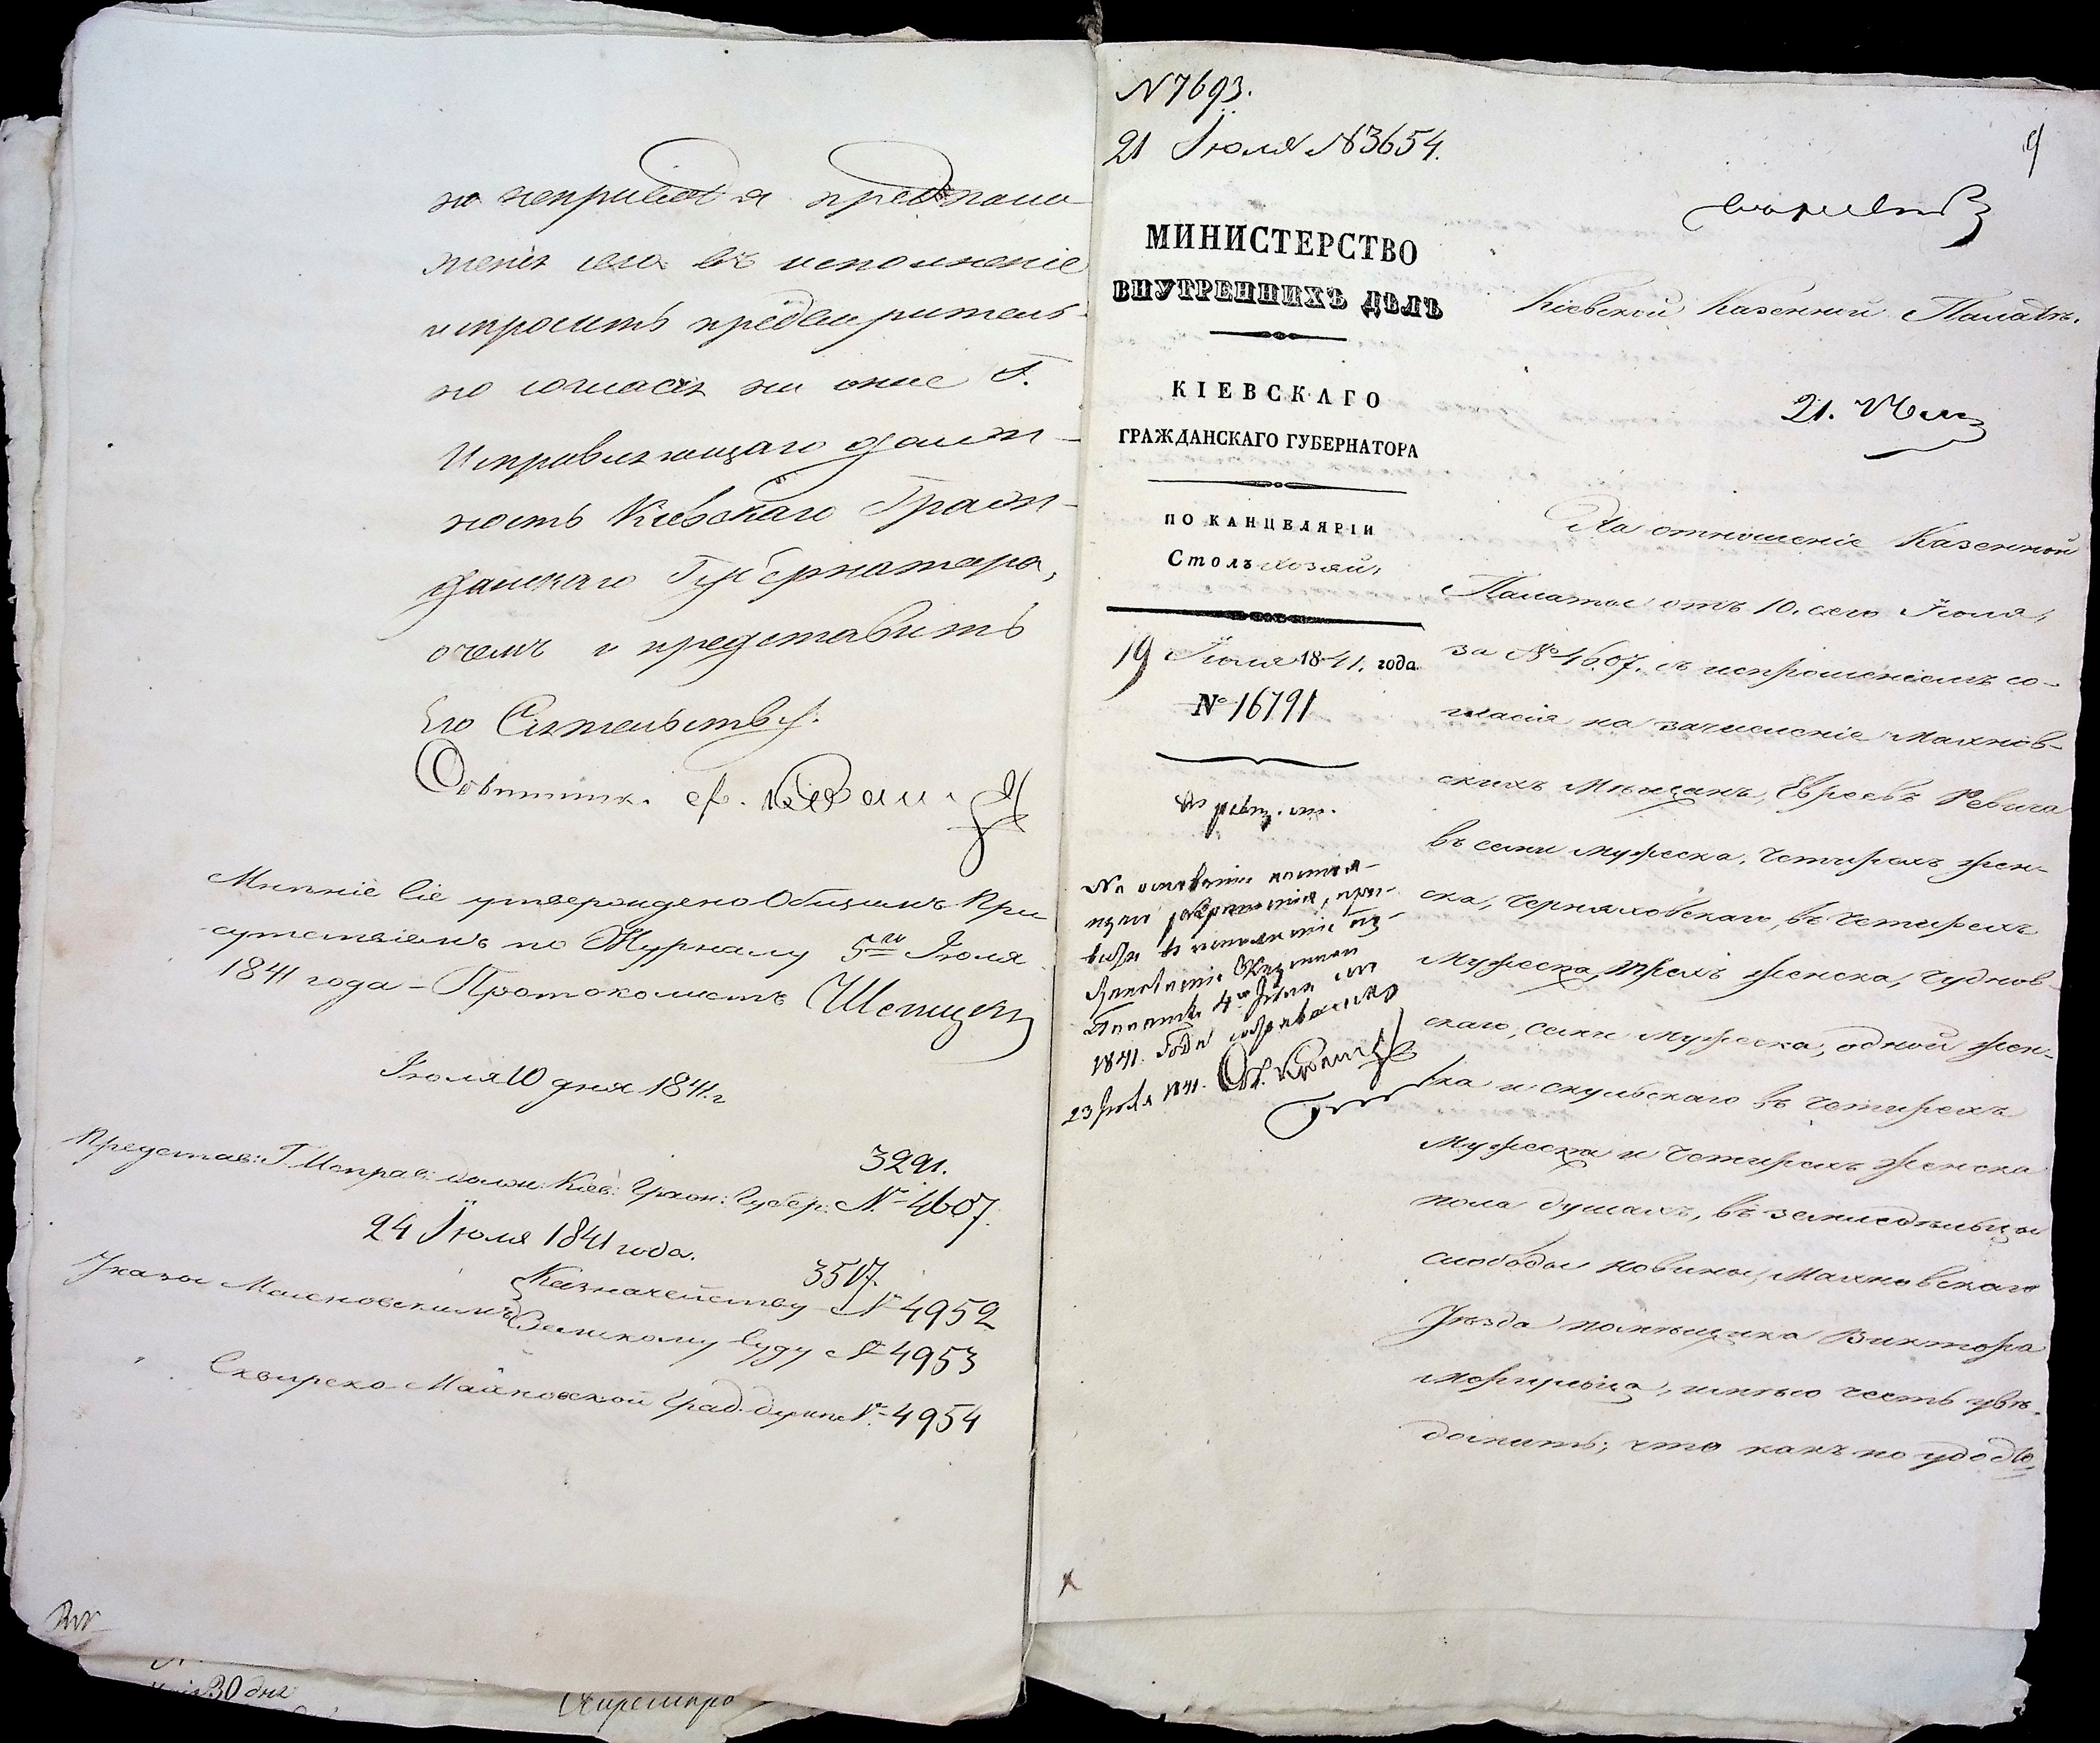 но неприводя предполо-
женія сего въ исполненіе
испросить предварительно-
но согласія на оное Г.
Исправляющаго долж-
ность Кіевскаго Граж-
данскаго Губернатора,
о чемъ и представить
Его Сіятельству.
Совѣтникъ
Мнѣніе сіе утверждено Общимъ При-
сутствіемъ по Журналу 5го Іюля
1841 года - Протоколистъ
Іюля 10 дня 1841 г
Представ: Г. Исправ: долж: Кіев: Граж: Губер: № 4607.
3291.
24 Іюля 1841 года.
3517.
Указы Махновскимъ
Казначейству № 4952
Земскому Суду № 4953
Сквирско Махновской Град. думѣ № 4954
30 дня
N 7693.
21 Іюля № 3654.
9
МИНИСТЕРСТВО
ВНУТРЕННИХЪ ДѢЛЪ
КІЕВСКАГО
ГРАЖДАНСКАГО ГУБЕРНАТОРА
ПО КАНЦЕЛЯРІИ
Столъ хозяй.
19 Іюля 1841. года
№ 16791
На основаніи
1841. года
23 Іюля 1841.
Кіевской Казенной Палатѣ.
21.
На отношеніе Казенной
Палаты отъ 10. сего Іюля,
за № 4607. съ испрошеніемъ со-
гласія на зачисленіе Махнов-
скихъ Мѣщанъ, Евреевъ Ревича
въ семи мужеска, четырехъ жен-
ска, Черняховскаго, въ четырехъ
мужеска, трехъ женска, Чуднов-
скаго, семи мужеска, одной жен-
ска и Скульскаго въ четырехъ
мужеска и четырехъ женска
пола душахъ, въ земледѣльцы
слободы Новины, Махновскаго
Уѣзда помѣщика Виктора
имѣю честь увѣ-
домить, что какъ по